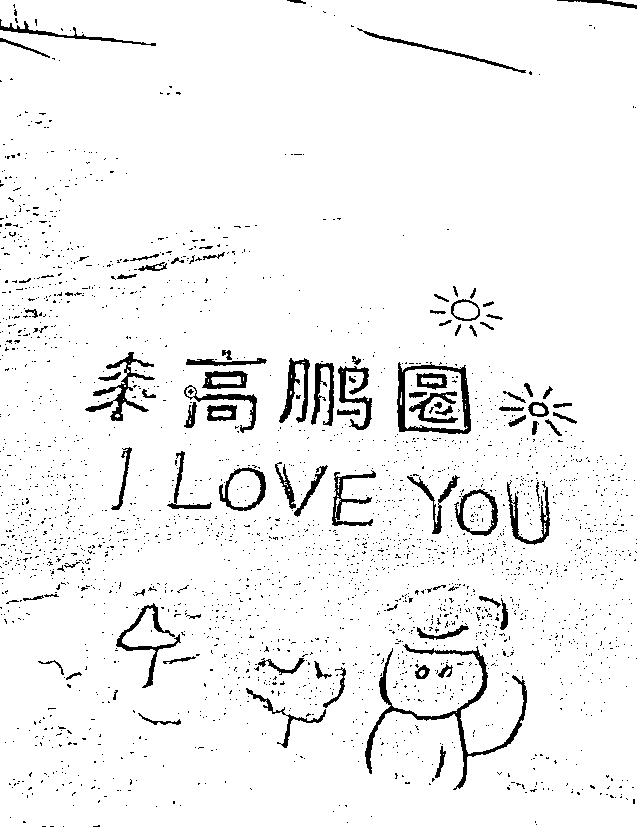 高鹏
I LOVE YOU